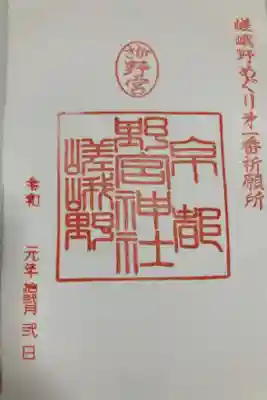 嵯峨野めぐり㐧一番祈願所
野宮
京都
野宮神社
嵯峨野
令和 元年 拾弐月 弐日